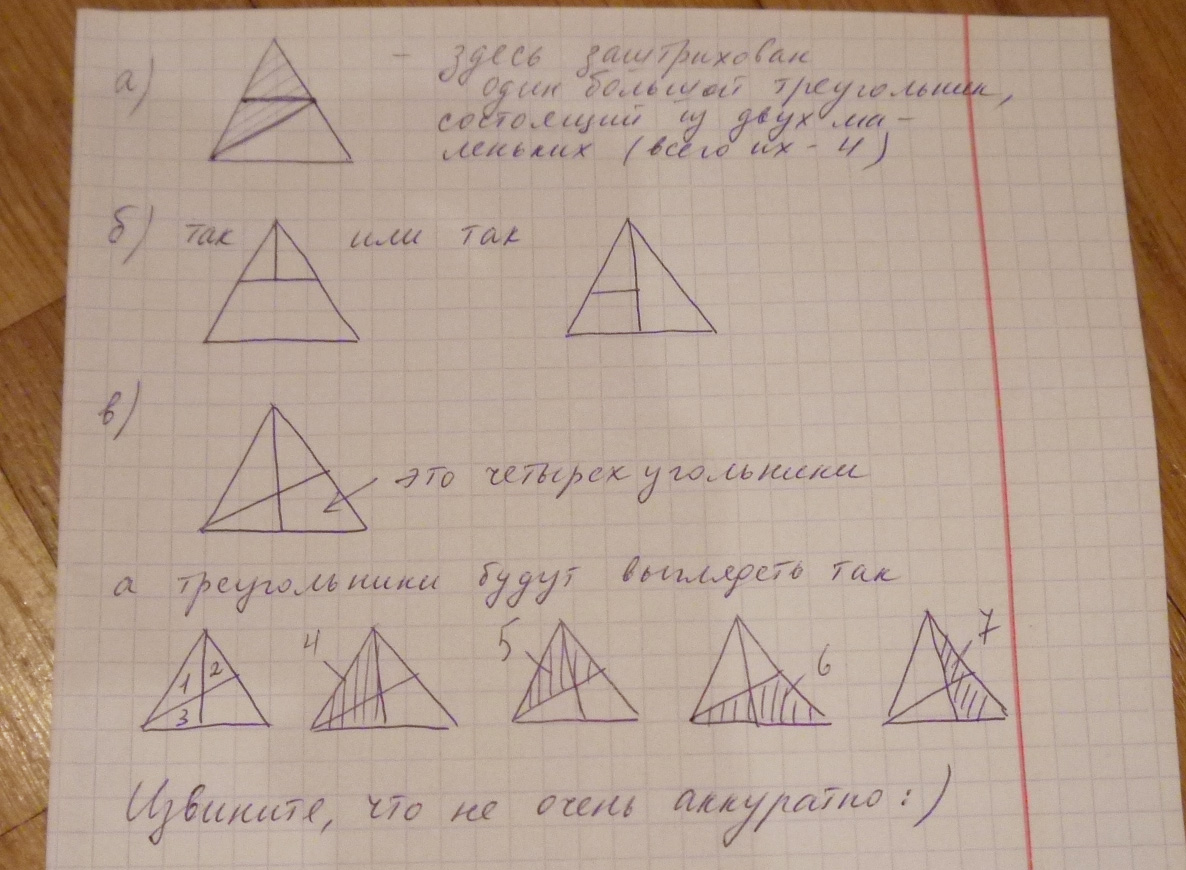 а) - здесь заштрихован
один большой треугольник,
состоящий из двух ма-
леньких (всего их - 4)
б) так или так
в)
это четырехугольники
а треугольники будут выглядеть так
1 2 3 4 5 6 7
Извините, что не очень аккуратно :)